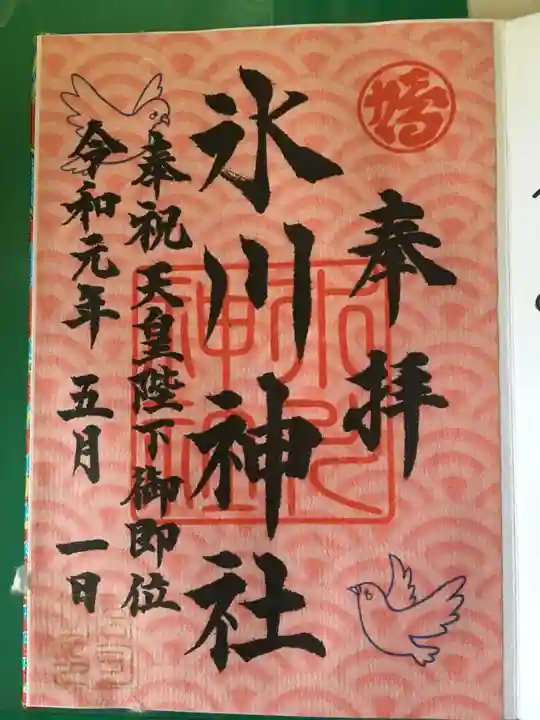 奉拝
氷川神社
奉祝天皇陛下御即位
令和元年 五月 一日